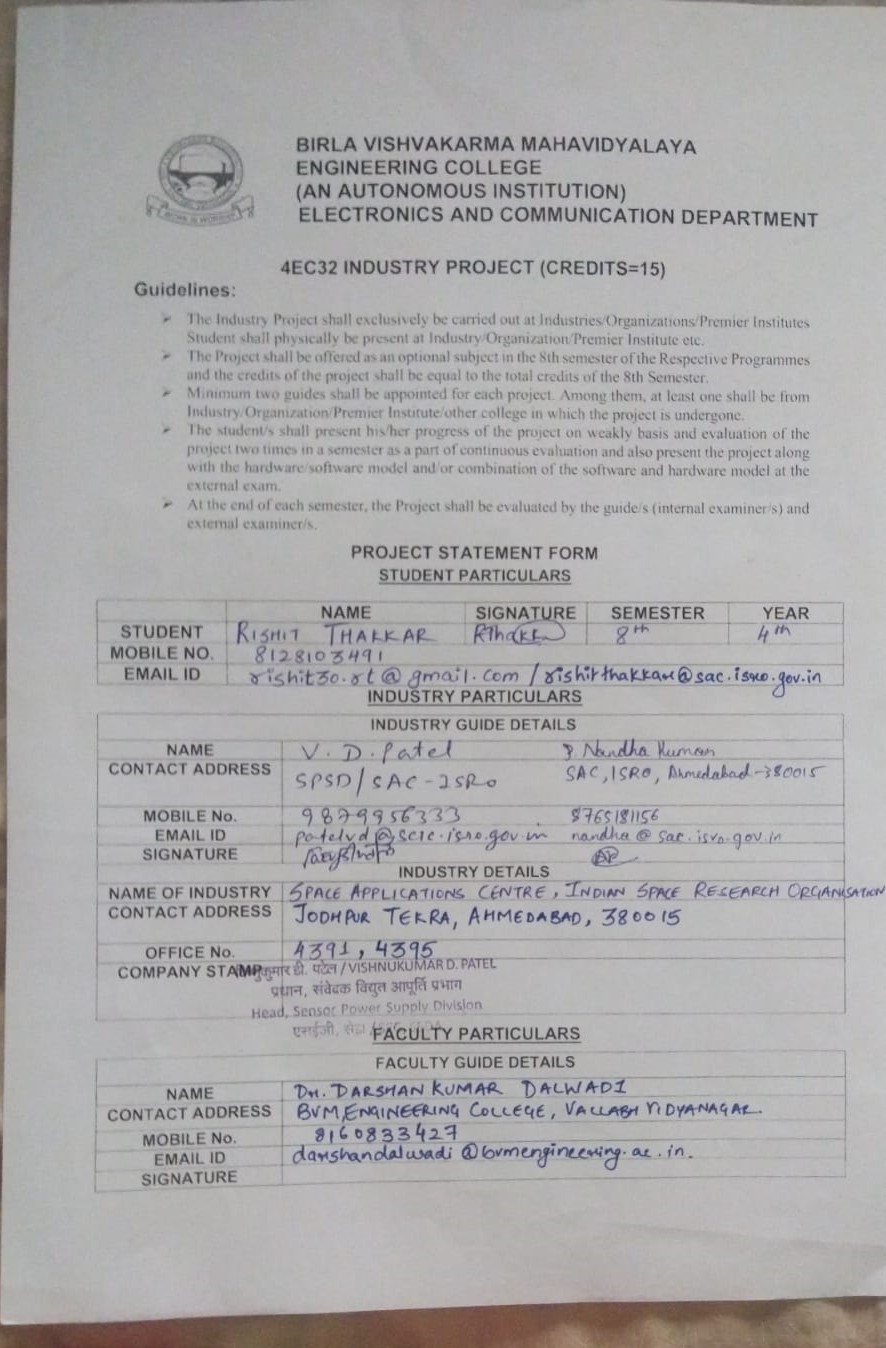 BIRLA VISHVAKARMA MAHAVIDYALAYA
ENGINEERING COLLEGE
(AN AUTONOMOUS INSTITUTION)
ELECTRONICS AND COMMUNICATION DEPARTMENT
4EC32 INDUSTRY PROJECT (CREDITS=15)
Guidelines:
➤ The Industry Project shall exclusively be carried out at Industries/Organizations/Premier Institutes
Student shall physically be present at Industry/Organization/Premier Institute etc.
➤ The Project shall be offered as an optional subject in the 8th semester of the Respective Programmes
and the credits of the project shall be equal to the total credits of the 8th Semester.
➤ Minimum two guides shall be appointed for each project. Among them, at least one shall be from
Industry/Organization/Premier Institute/other college in which the project is undergone.
➤ The student/s shall present his/her progress of the project on weakly basis and evaluation of the
project two times in a semester as a part of continuous evaluation and also present the project along
with the hardware/software model and/or combination of the software and hardware model at the
external exam.
➤ At the end of each semester, the Project shall be evaluated by the guide/s (internal examiner/s) and
external examiner/s.
PROJECT STATEMENT FORM
STUDENT PARTICULARS
NAME SIGNATURE SEMESTER YEAR
STUDENT RISHIT THAKKAR RThakkar 8th 4th
MOBILE NO. 8128103491
EMAIL ID rishit30.rt@gmail.com / rishitthakkar@sac.isro.gov.in
INDUSTRY PARTICULARS
INDUSTRY GUIDE DETAILS
NAME V. D. Patel P. Nandha Kumar
CONTACT ADDRESS SPSD/SAC-ISRO SAC, ISRO, Ahmedabad-380015
MOBILE No. 9879956333 8765181156
EMAIL ID patelvd@sac.isro.gov.in nandha@sac.isro.gov.in
SIGNATURE
INDUSTRY DETAILS
NAME OF INDUSTRY SPACE APPLICATIONS CENTRE, INDIAN SPACE RESEARCH ORGANISATION
CONTACT ADDRESS JODHPUR TEKRA, AHMEDABAD, 380015
OFFICE No. 4391, 4395
COMPANY STAMP डी. पटेल / VISHNUKUMAR D. PATEL
प्रधान, संवेदक विद्युत आपूर्ति प्रभाग
Head, Sensor Power Supply Division
एसईजी,
FACULTY PARTICULARS
FACULTY GUIDE DETAILS
NAME DR. DARSHAN KUMAR DALWADI
CONTACT ADDRESS BVM ENGINEERING COLLEGE, VALLABH VIDYANAGAR.
MOBILE No. 8160833427
EMAIL ID darshandalwadi@bvmengineering.ac.in.
SIGNATURE